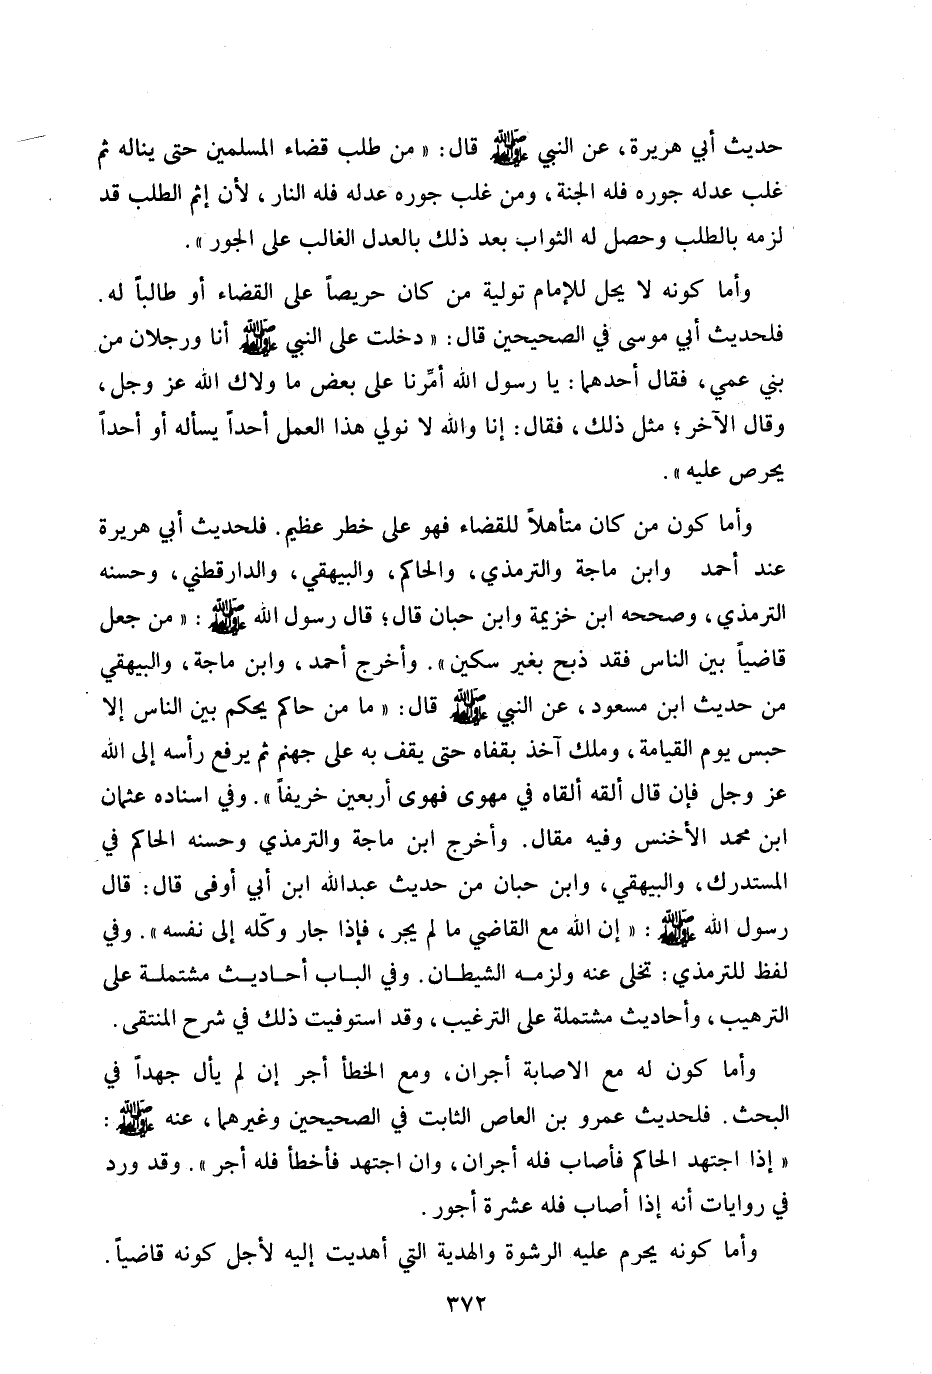 حديث أبي هريرة، عن النبي ﷺ قال: « من طلب قضاء المسلمين حتى يناله ثم
غلب عدله جوره فله الجنة، ومن غلب جوره عدله فله النار، لأن إثم الطلب قد
لزمه بالطلب وحصل له الثواب بعد ذلك بالعدل الغالب على الجور ».
وأما كونه لا يحل للإمام تولية من كان حريصاً على القضاء أو طالباً له.
فلحديث أبي موسى في الصحيحين قال: « دخلت على النبي ﷺ أنا ورجلان من
بني عمي، فقال أحدهما: يا رسول الله أمِّرنا على بعض ما ولاك الله عز وجل،
وقال الآخر؛ مثل ذلك، فقال: إنا والله لا نولي هذا العمل أحداً يسأله أو أحداً
يحرص عليه ».
وأما كون من كان متأهلاً للقضاء فهو على خطر عظيم. فلحديث أبي هريرة
عند أحمد وابن ماجة والترمذي، والحاكم، والبيهقي، والدارقطني، وحسنه
الترمذي، وصححه ابن خزيمة وابن حبان قال؛ قال رسول الله ﷺ: « من جعل
قاضياً بين الناس فقد ذبح بغير سكين ». وأخرج أحمد، وابن ماجة، والبيهقي
من حديث ابن مسعود، عن النبي ﷺ قال: « ما من حاكم يحكم بين الناس إلا
حبس يوم القيامة، وملك آخذ بقفاه حتى يقف به على جهنم ثم يرفع رأسه إلى الله
عز وجل فإن قال ألقه ألقاه في مهوى فهوى أربعين خريفاً ». وفي اسناده عثمان
ابن محمد الأخنس وفيه مقال. وأخرج ابن ماجة والترمذي وحسنه الحاكم في
المستدرك، والبيهقي، وابن حبان من حديث عبدالله ابن أبي أوفى قال: قال
رسول الله ﷺ: « إن الله مع القاضي ما لم يجر، فإذا جار وكّله إلى نفسه ». وفي
لفظ للترمذي: تخلى عنه ولزمه الشيطان. وفي الباب أحاديث مشتملة على
الترهيب، وأحاديث مشتملة على الترغيب، وقد استوفيت ذلك في شرح المنتقى.
وأما كون له مع الاصابة أجران، ومع الخطأ أجر إن لم يأل جهداً في
البحث. فلحديث عمرو بن العاص الثابت في الصحيحين وغيرهما، عنه ﷺ:
« إذا اجتهد الحاكم فأصاب فله أجران، وان اجتهد فأخطأ فله أجر ». وقد ورد
في روايات أنه إذا أصاب فله عشرة أجور.
وأما كونه يحرم عليه الرشوة والهدية التي أهديت إليه لأجل كونه قاضياً.
٣٧٢